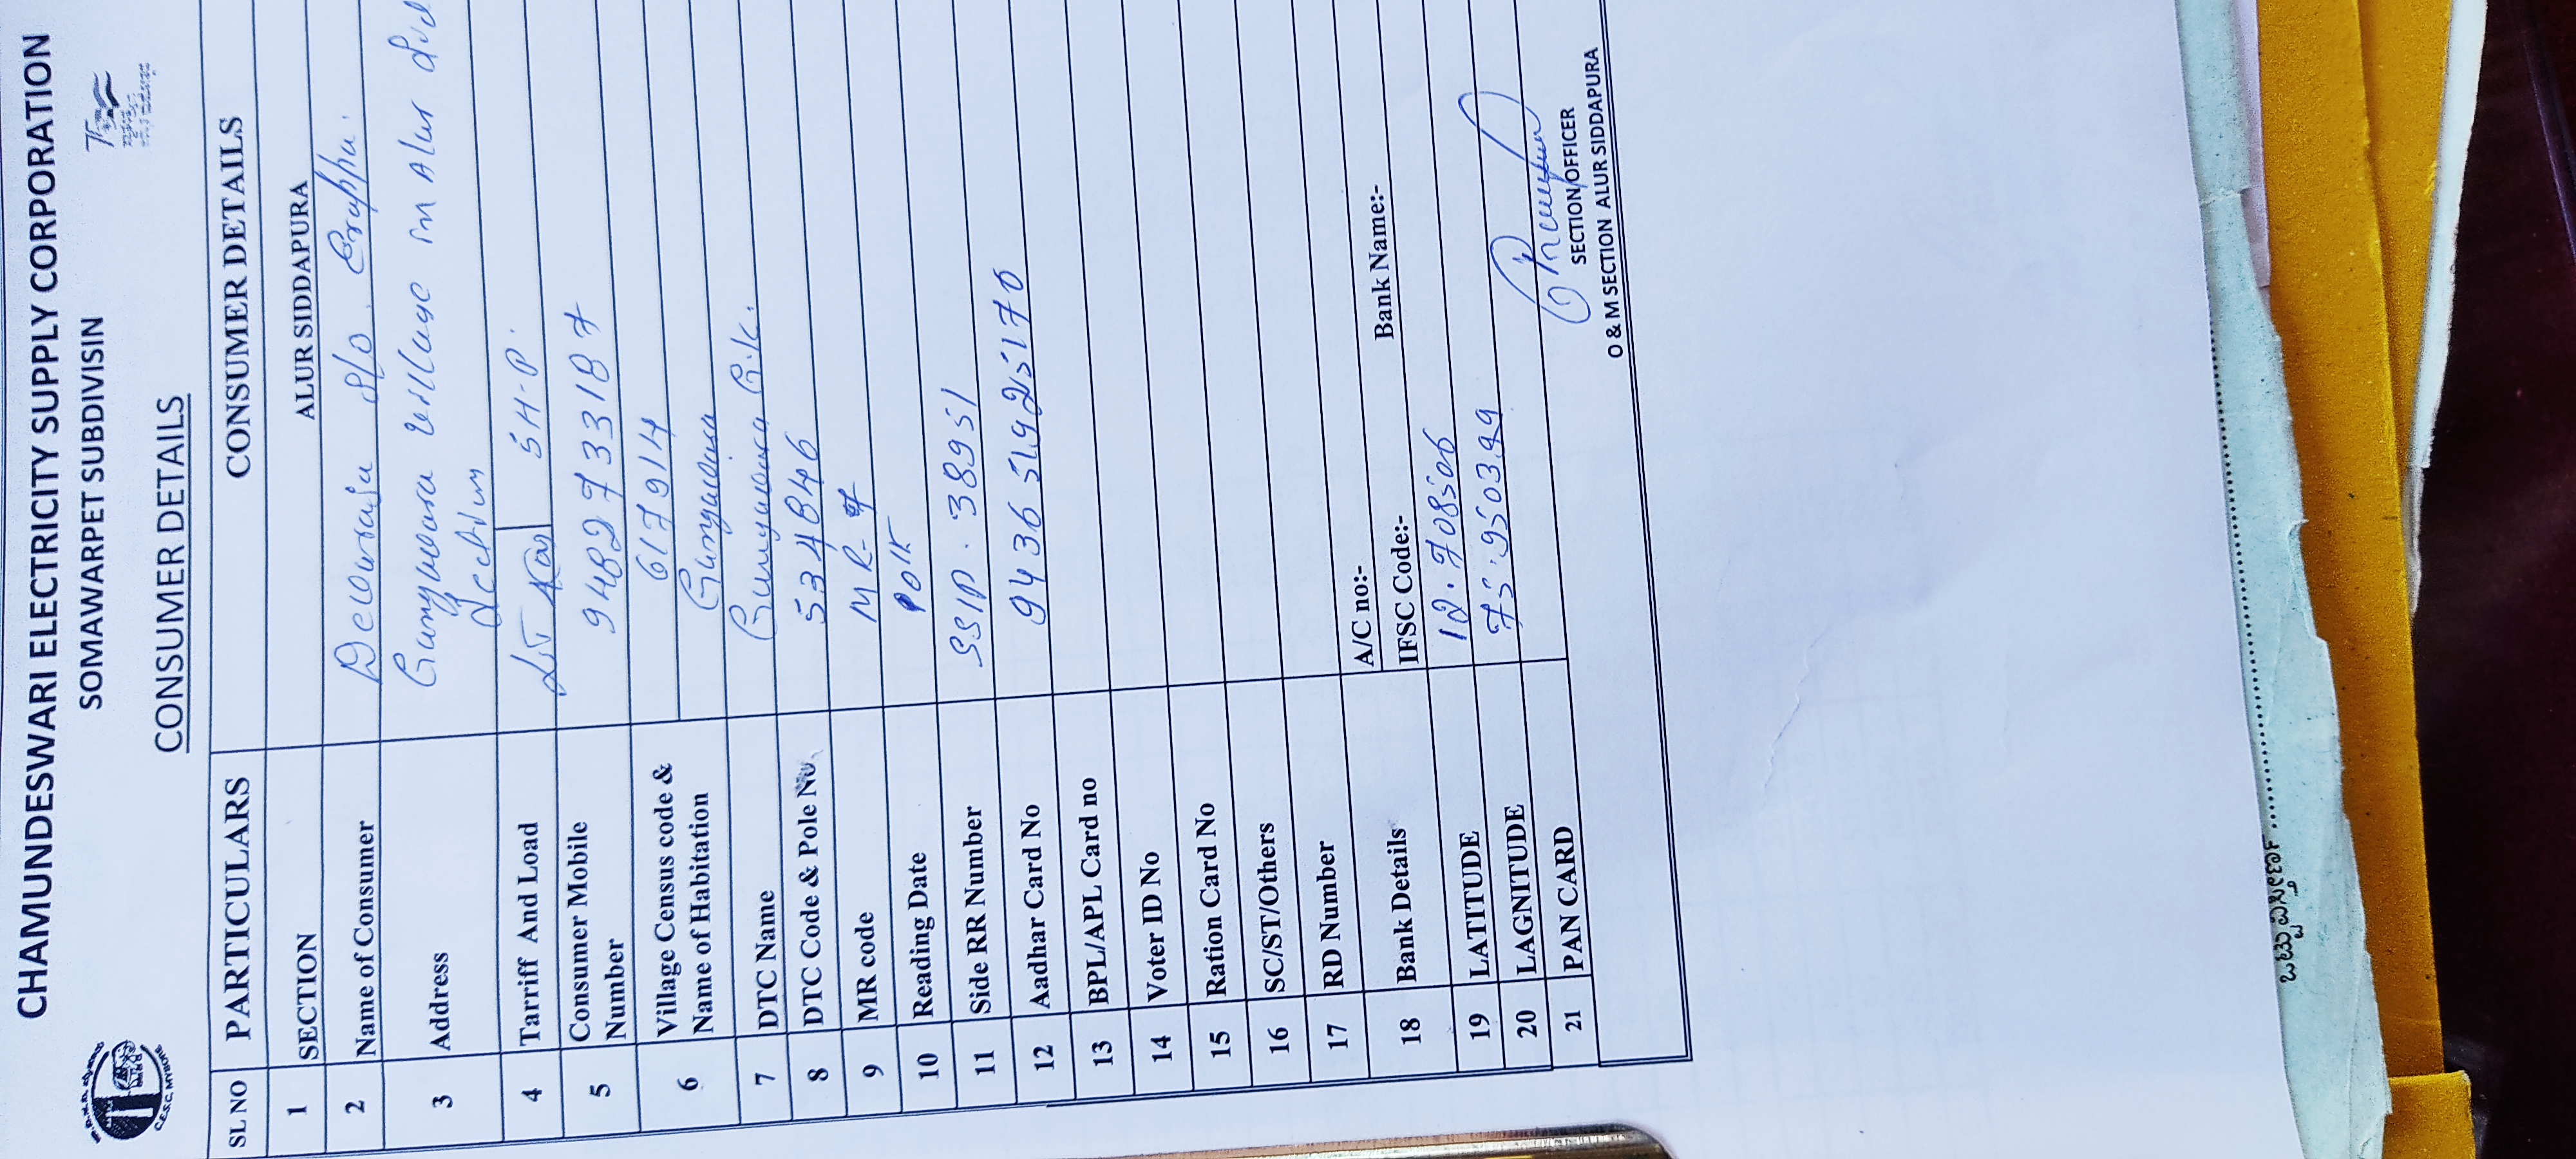 CHAMUNDESWARI ELECTRICITY SUPPLY CORPORATION
SOMAWARPET SUBDIVISIN
C.E.S.C, MYSORE
CONSUMER DETAILS
SL NO PARTICULARS CONSUMER DETAILS
1 SECTION ALUR SIDDAPURA
2 Name of Consumer Devaraja S/o. Erappa.
3 Address village in Alur
Section
4 Tarriff And Load 5 H-P.
5 Consumer Mobile Number 9482733187
6 Village Census code & Name of Habitation 617914
7 DTC Name
8 DTC Code & Pole No. 534846
9 MR code MR-
10 Reading Date
11 Side RR Number SSIP. 38951
12 Aadhar Card No 9436 5192 5170
13 BPL/APL Card no
14 Voter ID No
15 Ration Card No
16 SC/ST/Others
17 RD Number
18 Bank Details A/C no:- Bank Name:-
IFSC Code:-
19 LATITUDE 12.708506
20 LAGNITUDE 75.950399
21 PAN CARD
SECTION OFFICER
O & M SECTION ALUR SIDDAPURA